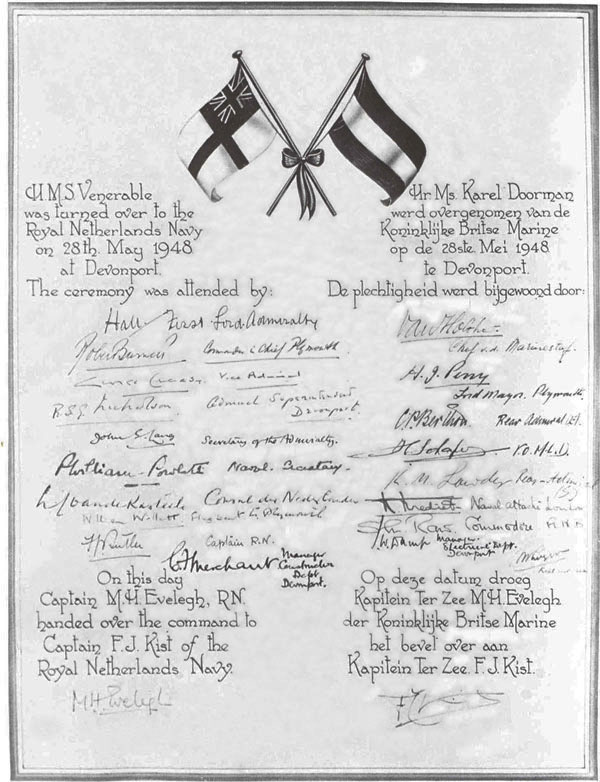 H.M.S. Venerable
was turned over to the
Royal Netherlands Navy
on 28th. May 1948
at Devonport.
The ceremony was attended by:
Hall First Lord Admiralty
Commander in Chief Plymouth
Vice Admiral
Nicholson Admiral Superintendent
Devonport.
John G. Lang Secretary of the Admiralty.
Naval Secretary.
Consul der Nederlanden
Plymouth
Captain R.N.
Merchant Manager
Constructive
Dept.
Devonport.
On this day
Captain M.H. Evelegh, R.N.
handed over the command to
Captain F.J. Kist of the
Royal Netherlands Navy.
M.H. Evelegh
Hr Ms. Karel Doorman
werd overgenomen van de
Koninklijke Britse Marine
op de 28ste. Mei 1948
te Devonport.
De plechtigheid werd bijgewoond door:
Chef v.d. Marinestaf.
H.J. Perry
Lord Mayor, Plymouth
Rear Admiral
F.O.M.L.D.
Rear-Admiral
(S)
Naval attaché
Commodore
Manager
Electrical Dept.
Devonport
Op deze datum droeg
Kapitein Ter Zee M.H. Evelegh
der Koninklijke Britse Marine
het bevel over aan
Kapitein Ter Zee. F.J. Kist.